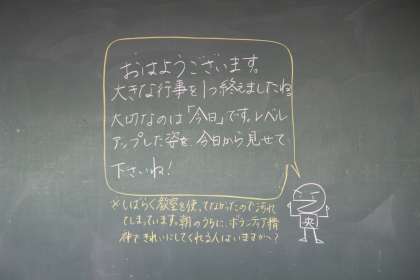 おはようございます。
大きな行事を1つ終えましたね
大切なのは「今日」です。レベル
アップした姿を、今日から見せて
下さいね!
※しばらく教室を使ってなかったので汚れて
てしまっています。朝のうちに、ボランティア精
神できれいにしてくれる人はいますか〜?
央